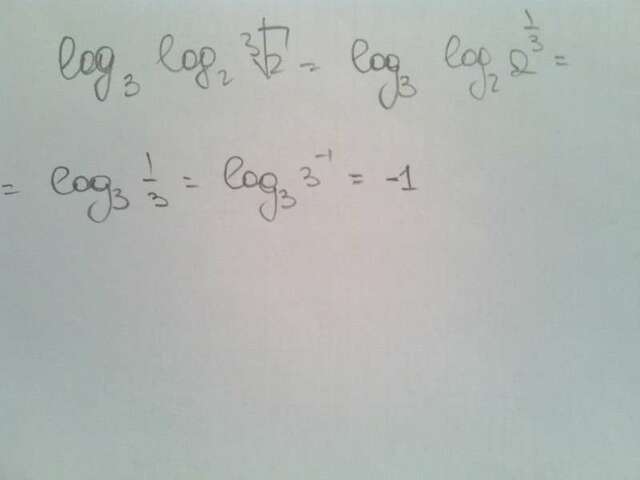 log₃ log₂ ∛2 = log₃ log₂ 2^(1/3) =
= log₃ 1/3 = log₃ 3⁻¹ = -1